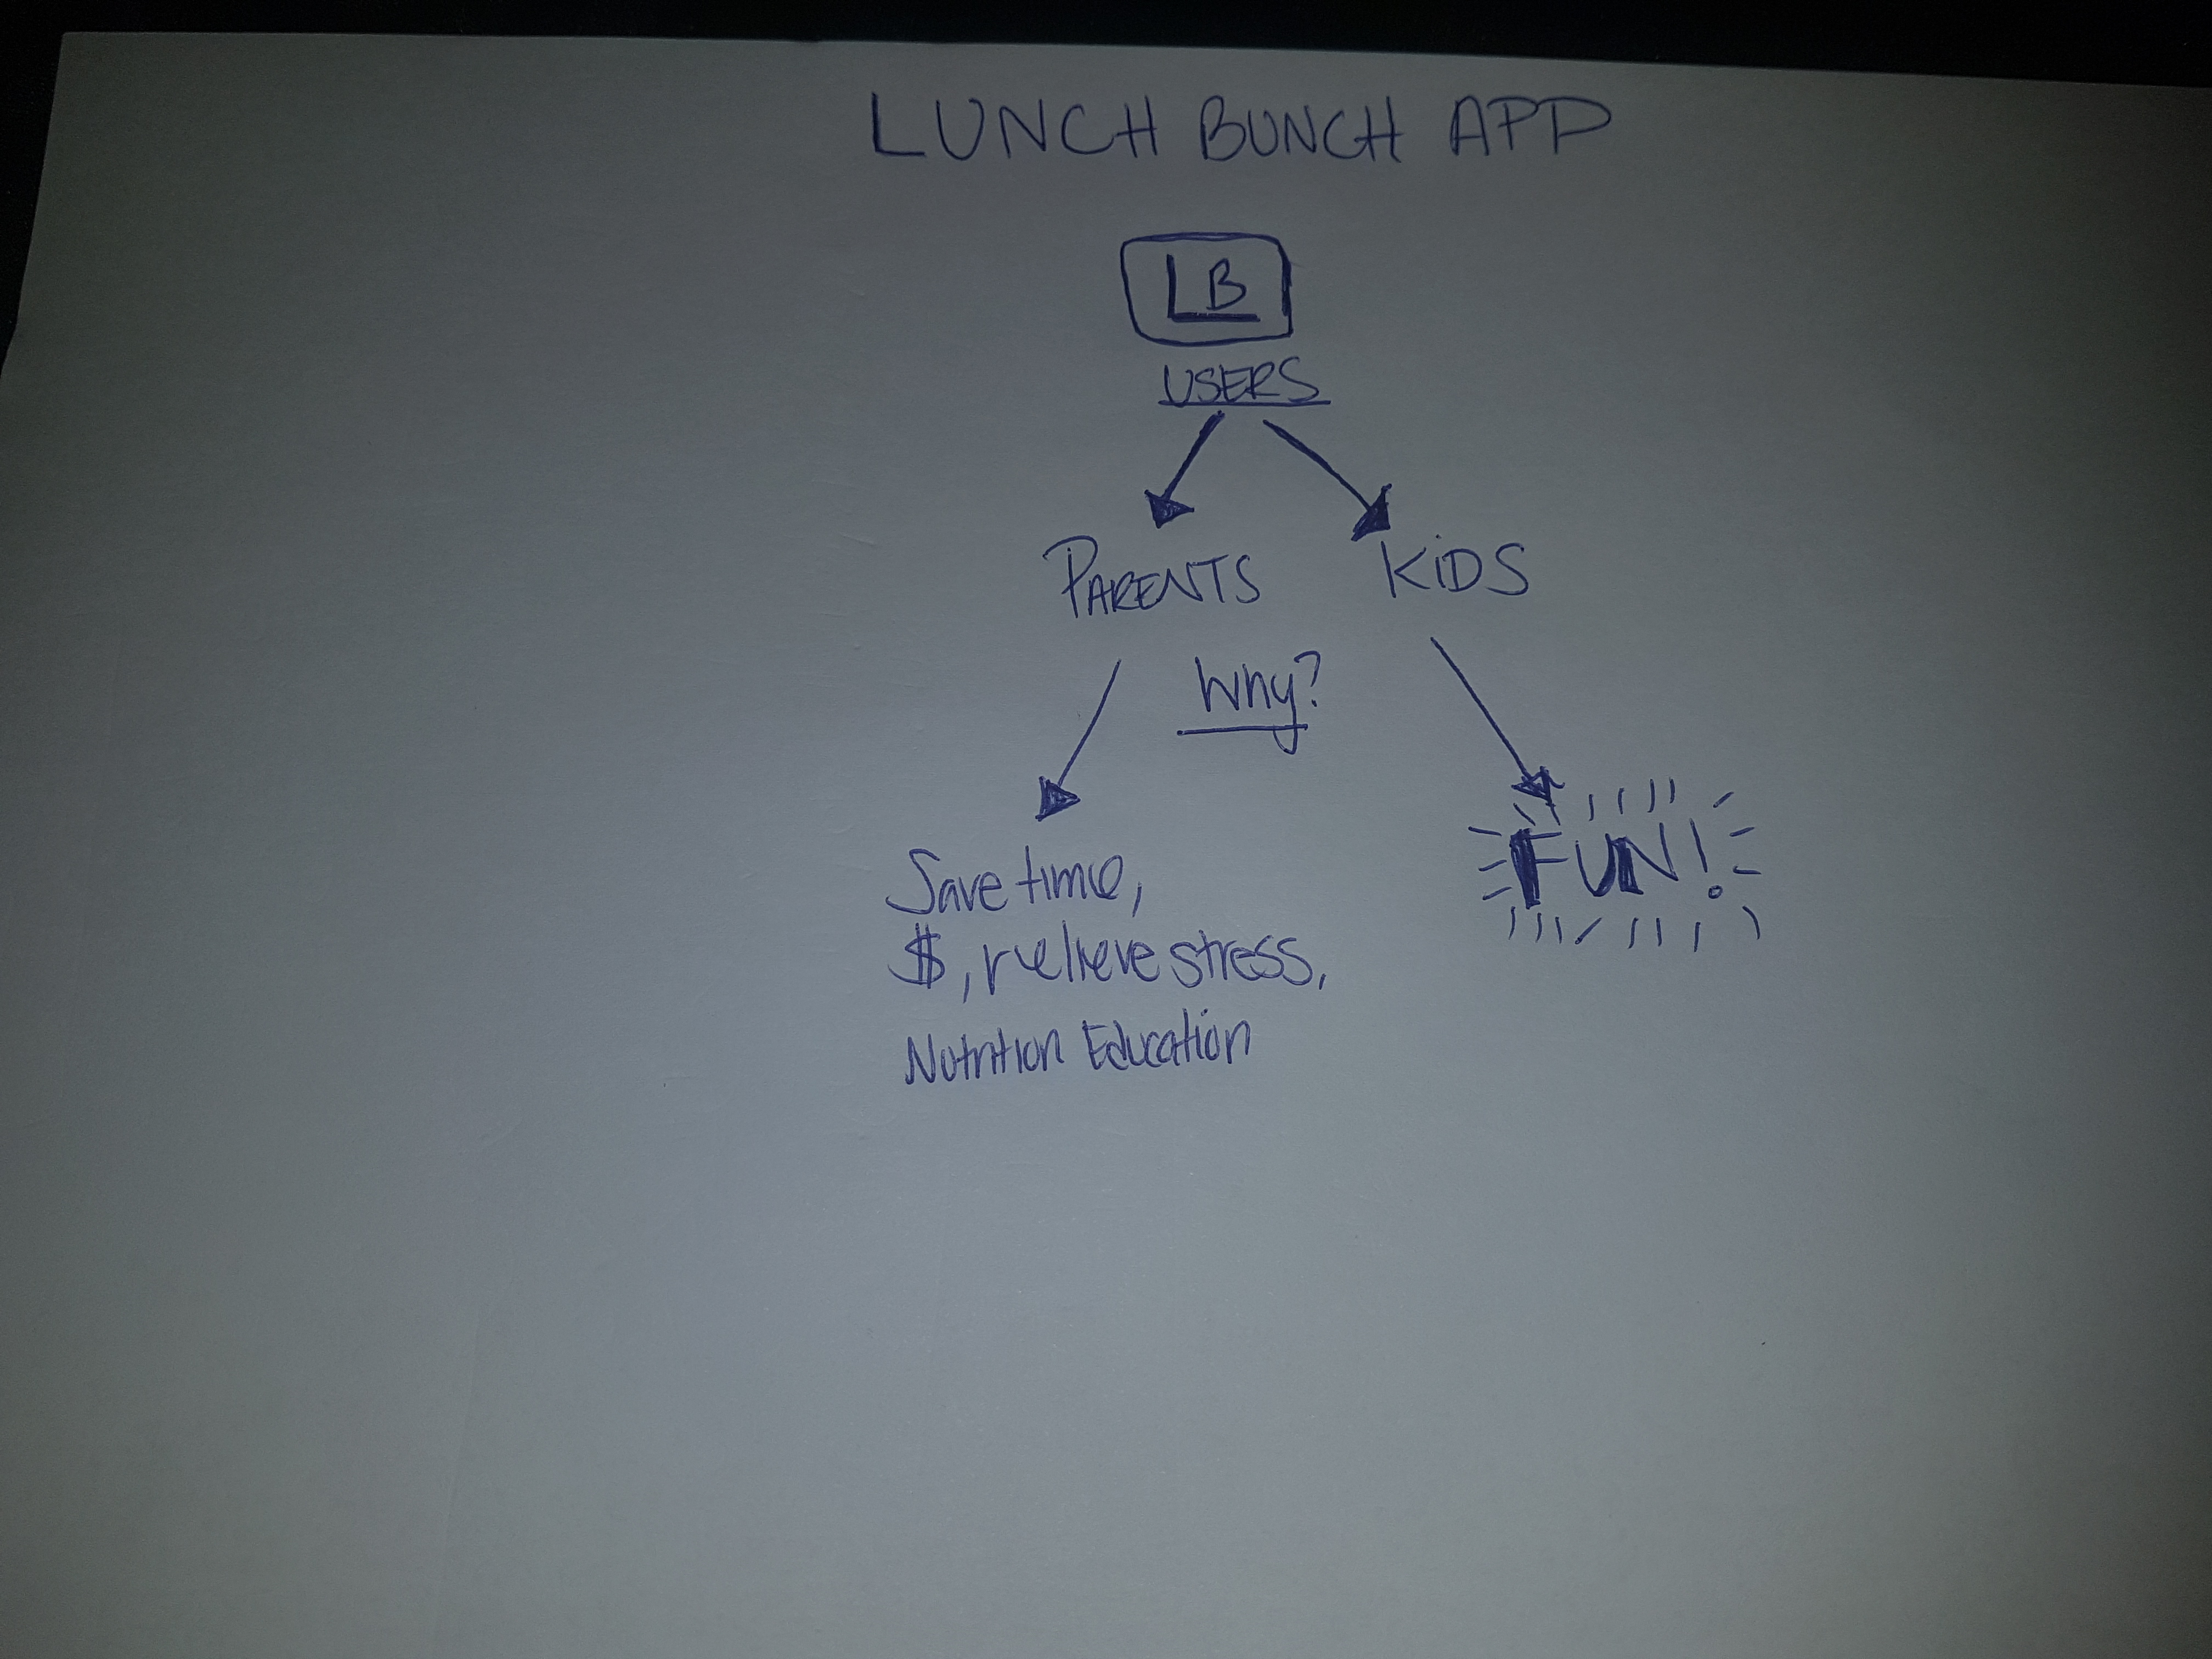 LUNCH BUNCH APP
LB
USERS
PARENTS KiDS
Why?
Save time,
$, relieve stress,
Nutrition Education
FUN!